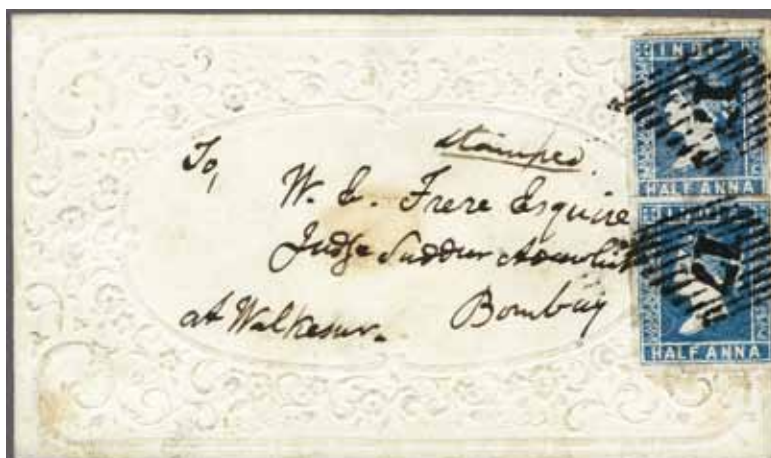 stamped.
To,
W. E. Frere Esquire
Judge Suddur Adawlut
at Walkesur.
Bombay
INDIA
HALF ANNA
HALF ANNA